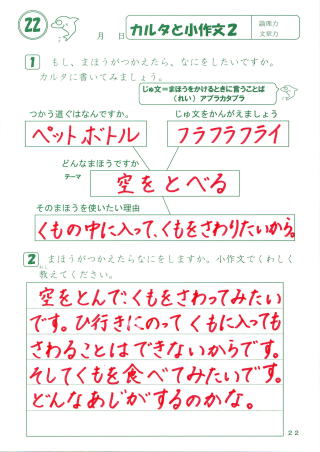 22
月 日
カルタと小作文2
論理力
文章力
1 もし、まほうがつかえたら、なにをしたいですか。
カルタに書いてみましょう。
じゅ文=まほうをかけるときに言うことば
(れい) アブラカタブラ
つかう道ぐはなんですか。
じゅ文をかんがえましょう
ペットボトル
フラフラフライ
どんなまほうですか
テーマ
空をとべる
そのまほうを使いたい理由
くもの中に入って、くもをさわりたいから。
2 まほうがつかえたらなにをしますか。小作文でくわしく
教えてください。
空をとんで、くもをさわってみたい
です。ひ行きにのって くもに入っても
さわることは できないからです。
そしてくもを食べてみたいです。
どんなあじがするのかな。
22